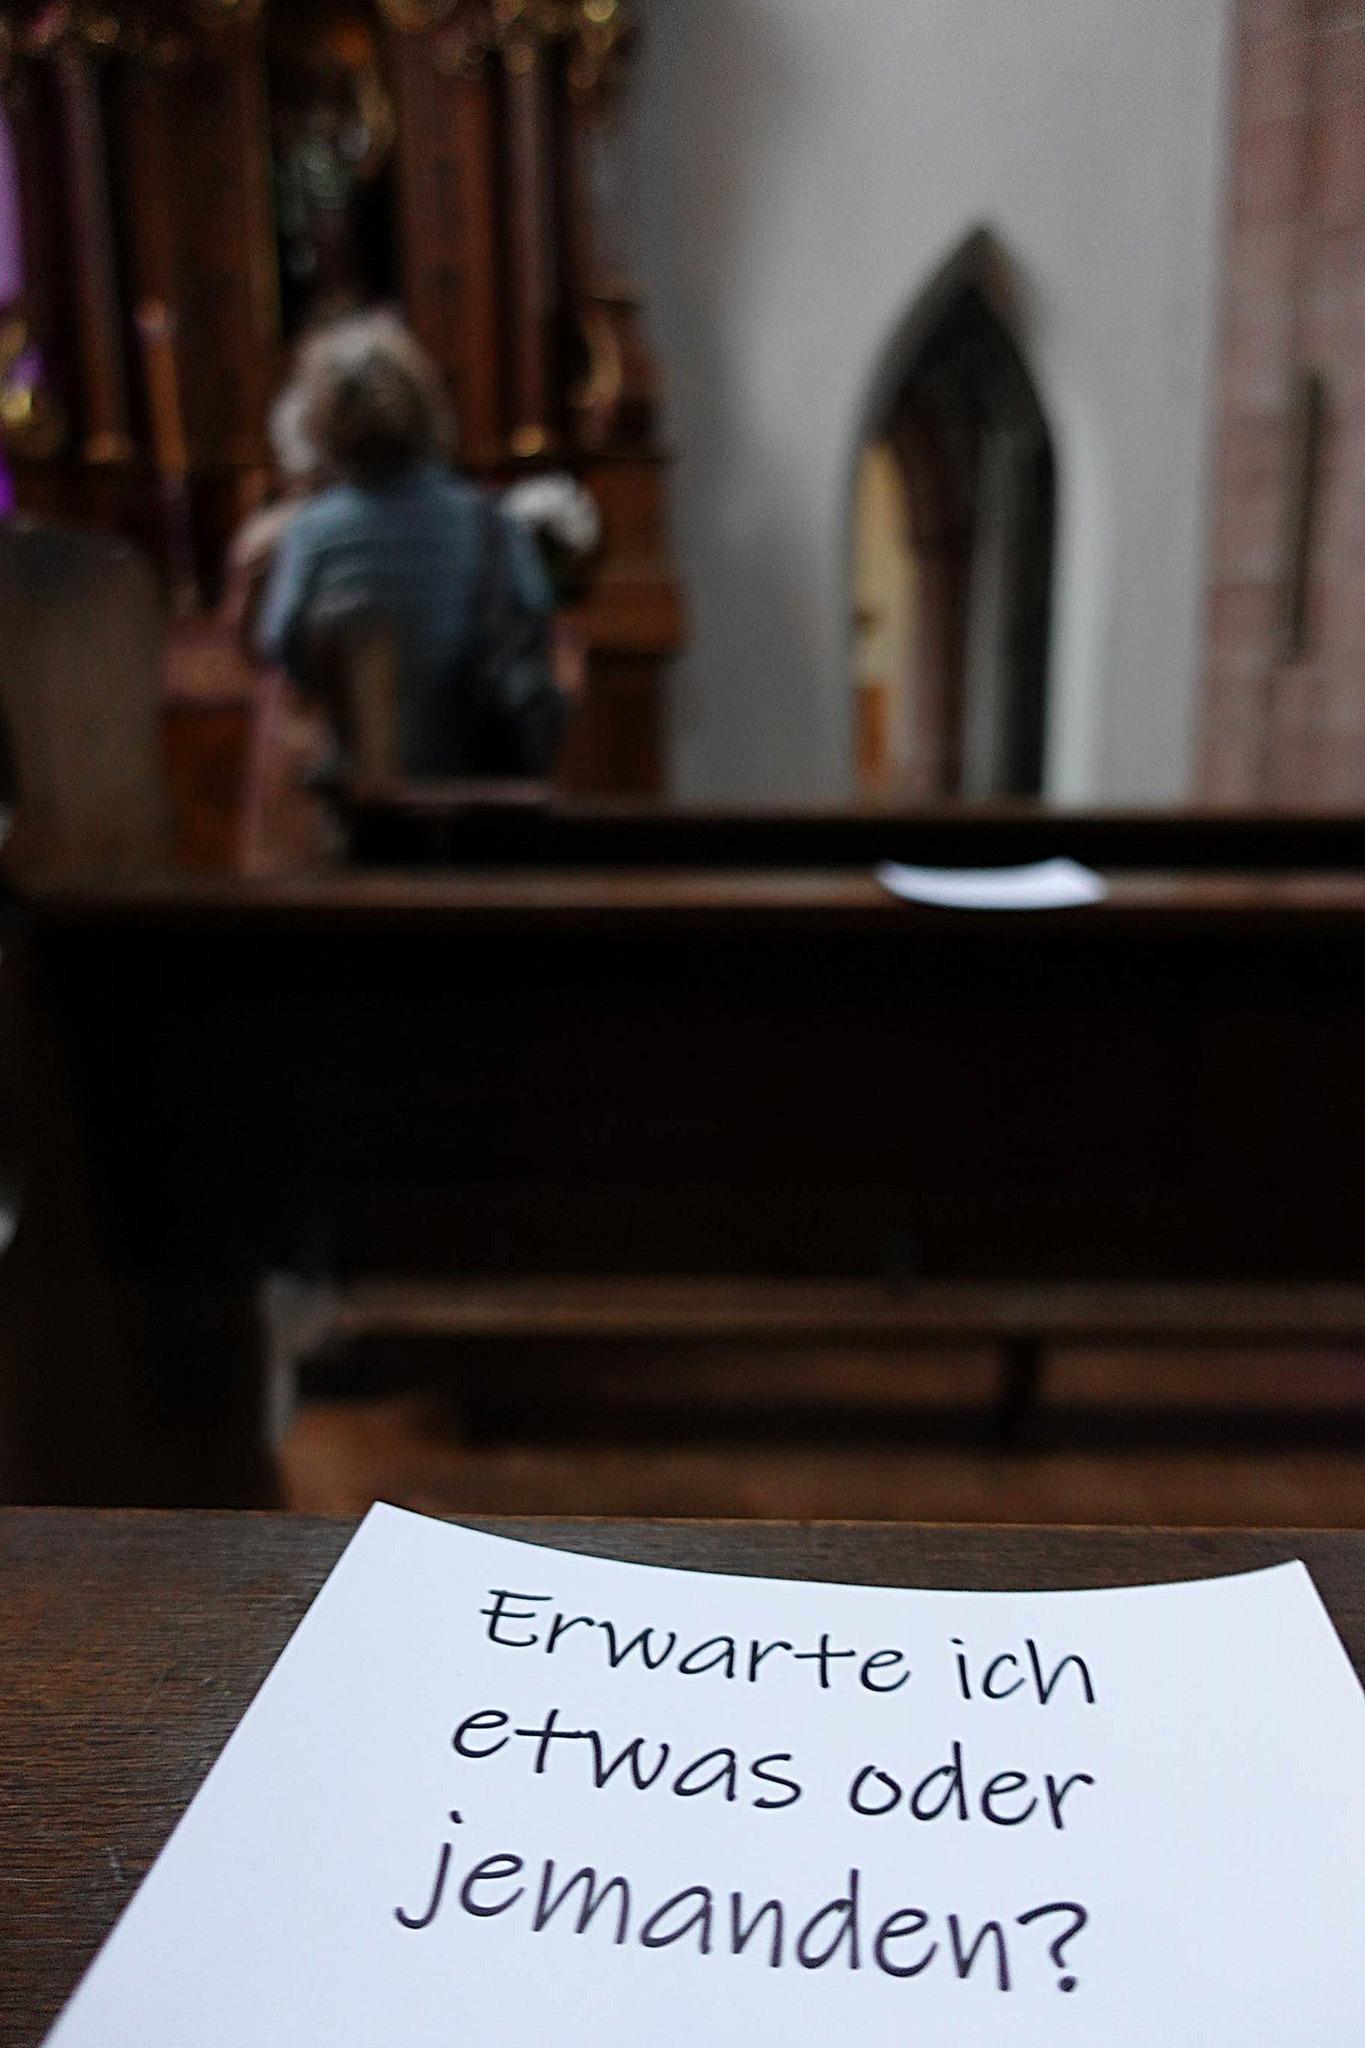 Erwarte ich
etwas oder
jemanden?